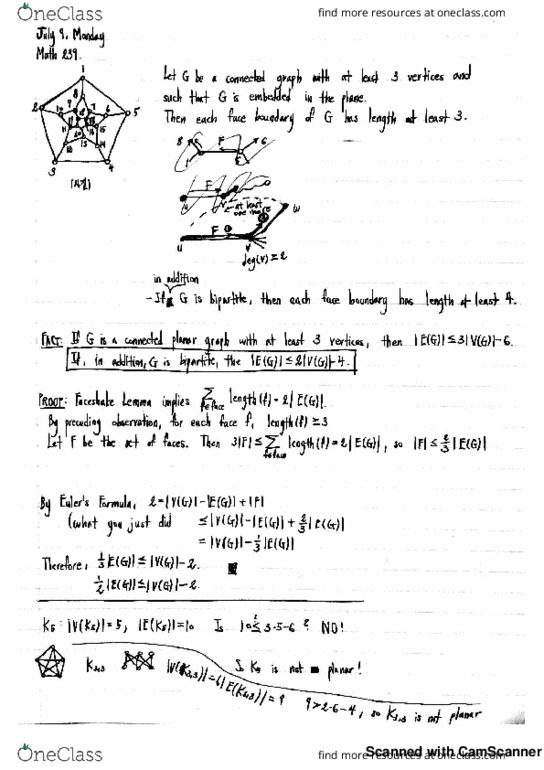 OneClass
find more resources at oneclass.com
July 9, Monday
Math 239.
Let G be a connected graph with at least 3 vertices and
such that G is embedded in the plane.
Then each face boundary of G has length at least 3.
1
2
5
3
4
F
at least
F
u
v
w
deg(v) ≥ 2
in addition
- If G is bipartite, then each face boundary has length at least 4.
FACT: If G is a connected planar graph with at least 3 vertices, then |E(G)| ≤ 3|V(G)|-6.
If, in addition, G is bipartite, the |E(G)| ≤ 2|V(G)|-4.
PROOF: Faceshake Lemma implies ∑ f∈face length(f) = 2|E(G)|.
By preceding observation, for each face f, length(f) ≥ 3
Let F be the set of faces. Then 3|F| ≤ ∑ f∈face length(f) = 2|E(G)|, so |F| ≤ 2/3 |E(G)|
By Euler's Formula, 2 = |V(G)| - |E(G)| + |F|
(what you just did ≤ |V(G)| - |E(G)| + 2/3 |E(G)|
= |V(G)| - 1/3 |E(G)|
Therefore, 1/3 |E(G)| ≤ |V(G)| - 2.
1/2 |E(G)| ≤ |V(G)| - 2.
K5: |V(K5)| = 5, |E(K5)| = 10 Is 10 ≤ 3·5-6 ? NO!
K3,3 |V(K3,3)| = 6 |E(K3,3)| = 9 9 > 2·6-4, so K3,3 is not planar
So K5 is not planar!
OneClass
find more resources at oneclass.com
Scanned with CamScanner